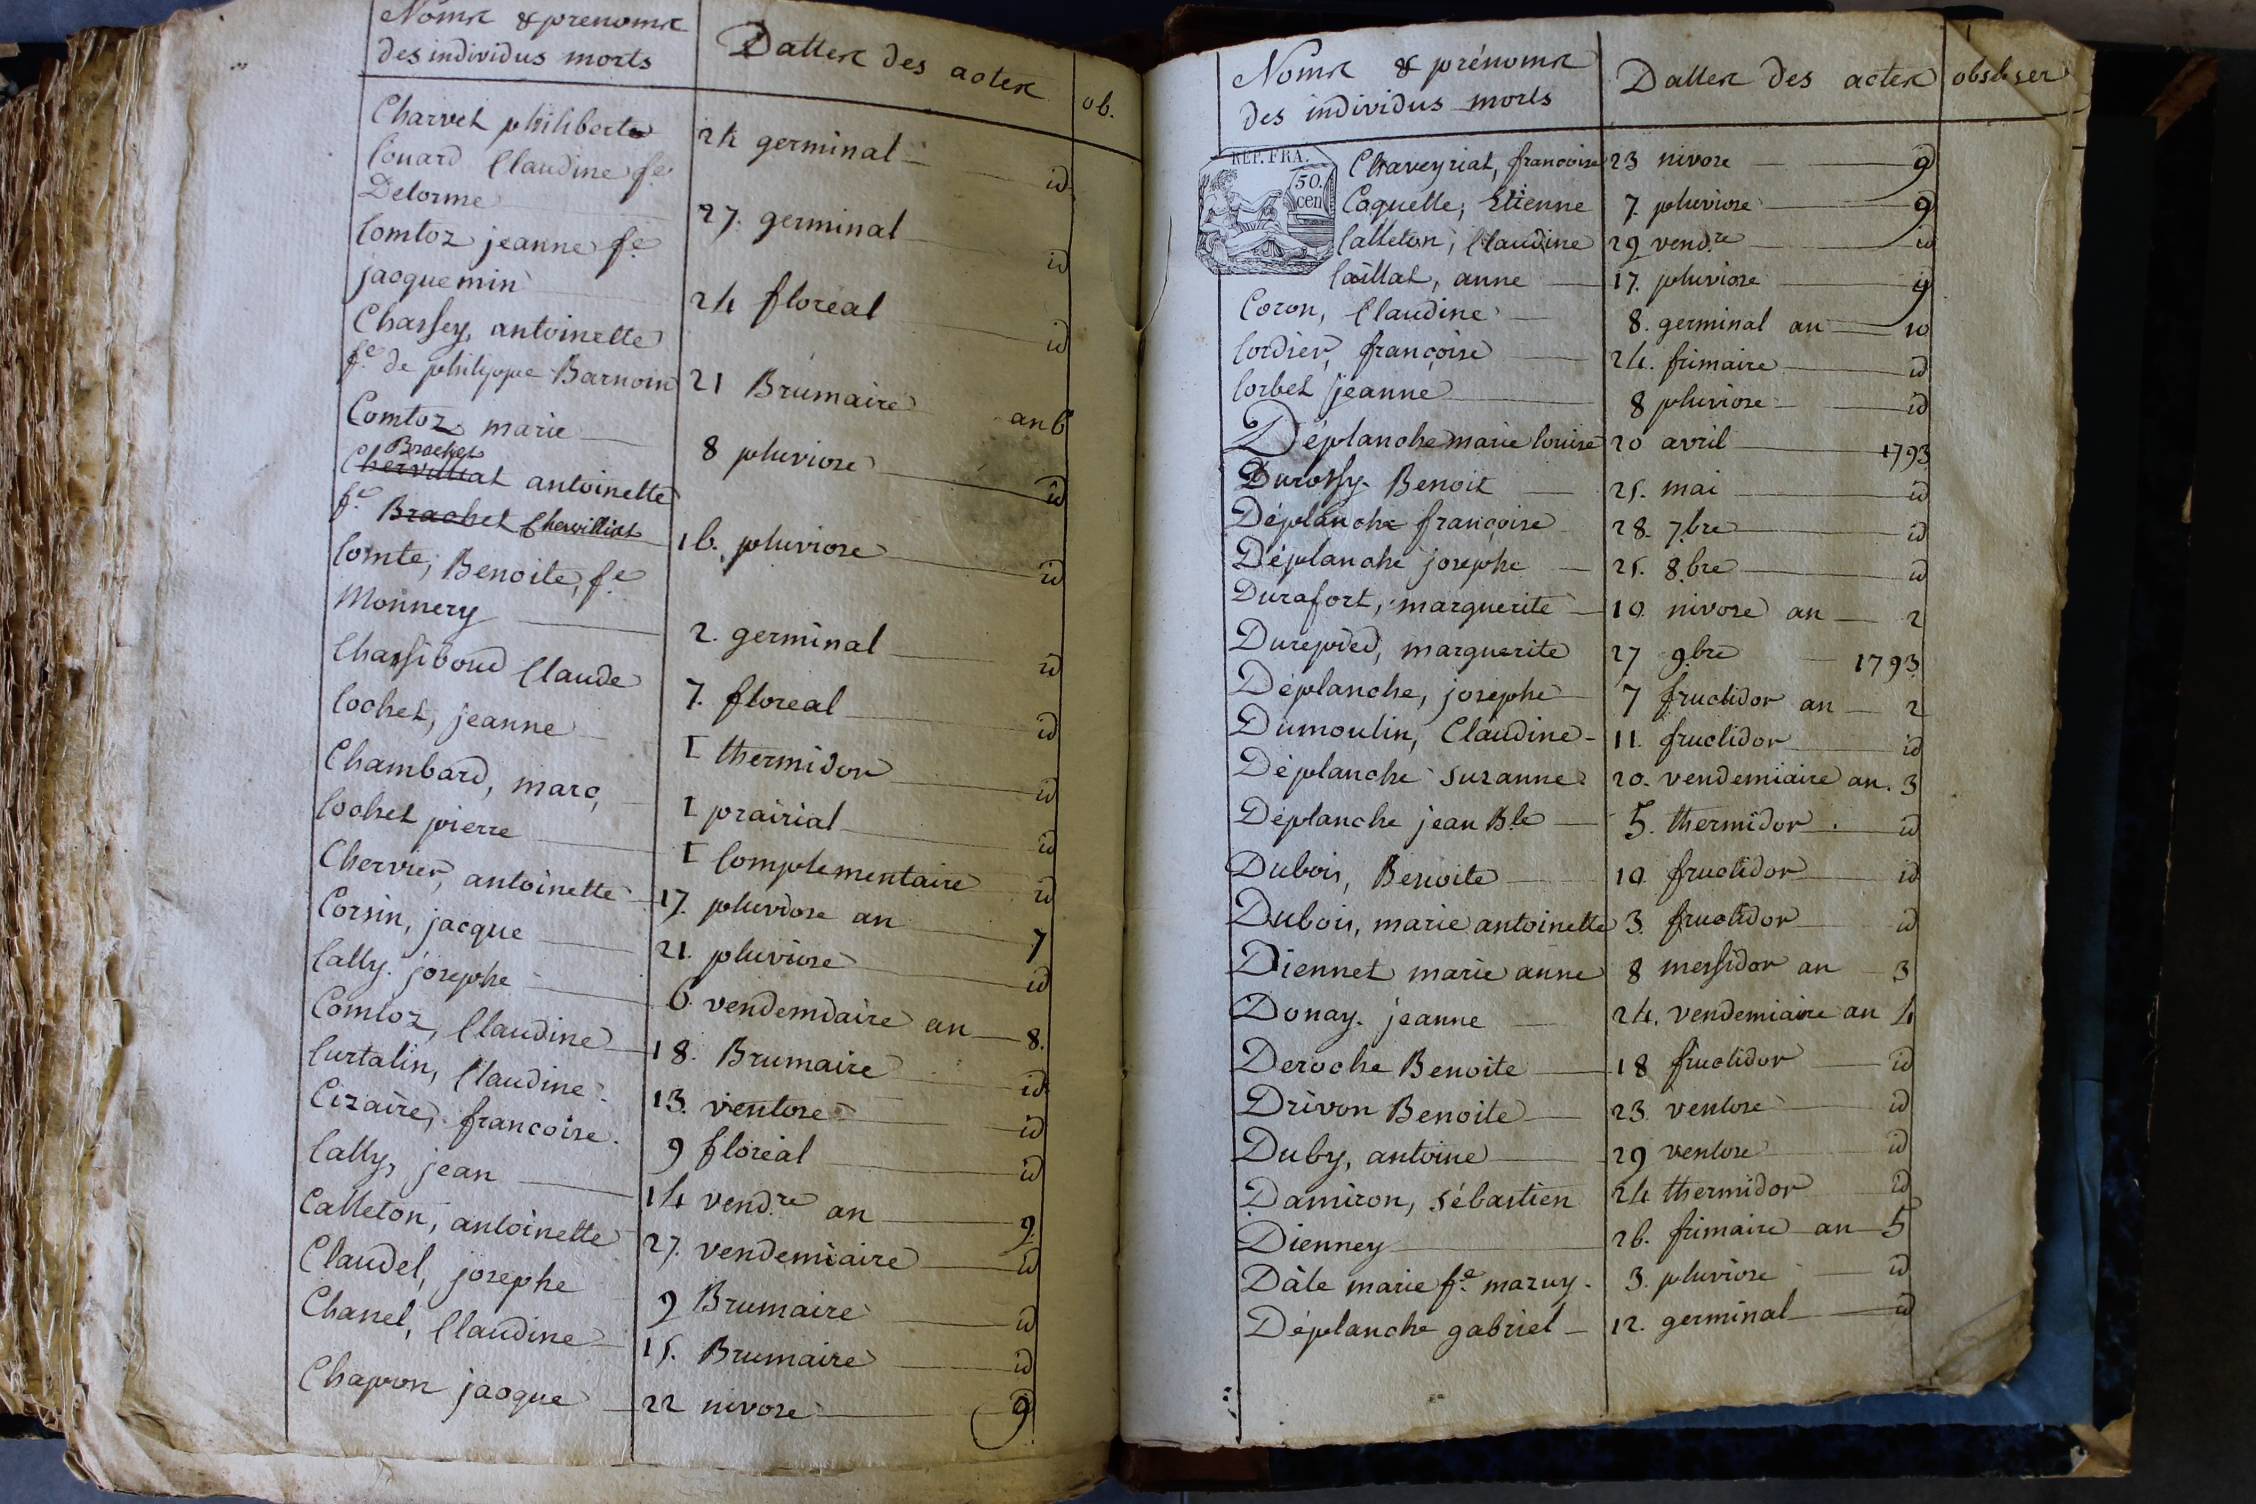 Noms & prenoms
des individus morts
Dattes des actes
ob.
Charvet philiberte 24 germinal id
Couard Claudine fe
Delorme 27. germinal id
Comtoz jeanne fe
jacquemin 24 floréal id
Chassey, antoinette
fe de philippe Barnoin 21 Brumaire an 6
Comtoz marie 8 pluviose id
Brachet
Chervilliat antoinette
fe Brachet Chervilliat 16. pluviose id
Comte, Benoite, fe
Monnery 2. germinal id
Chassiboud Claude 7. floréal id
Cochet, jeanne 1 thermidor id
Chambard, marc, 1 prairial id
Cochet pierre 1 Complementaire id
Chervier, antoinette 17. pluviose an 7
Corsin, jacque 21. pluviose id
Cally. josephe 6 vendemiaire an 8.
Comtoz, Claudine 18. Brumaire id
Curtalin, Claudine 13. ventose id
Cizaire, francoise. 9 floréal id
Cally, jean 14 vend.re an 9.
Catteton, antoinette 27. vendemiaire id
Claudel, josephe 9 Brumaire id
Chanel, Claudine 15. Brumaire id
Chapon jacque 22 nivose 9
Noms & prénoms
des individus morts
Dattes des actes
obsever
REP. FRA.
50.
cen
Chaveyriat, francoise 23 nivose 9
Coquelle, Etienne 7. pluviose 9
Catteton, Claudine 29 vend.re id
Caillat, anne 17. pluviose 9
Coron, Claudine 8. germinal an 10
Cordier, françoise 24. frimaire id
Corbet jeanne 8 pluviose id
Déplanche marie louise 20 avril 1793
Durossy Benoit 25. mai id
Déplanche françoise 28. 7.bre id
Déplanche josephe 25. 8.bre id
Durafort, marguerite 10. nivose an 2
Durepied, marguerite 27 9.bre 1793
Déplanche, josephe 7 fructidor an 2
Dumoulin, Claudine 11. fructidor id
Déplanche Suzanne 20. vendemiaire an. 3
Déplanche jean B.te 5. thermidor. id
Dubois, Benoite 10 fructidor id
Dubois, marie antoinette 3. fructidor id
Diennet marie anne 8 messidor an 3
Donay. jeanne 24. vendemiaire an 4
Deroche Benoite 18 fructidor id
Drivon Benoite 23. ventose id
Duby, antoine 29 ventose id
Damiron, Sébastien 24 thermidor id
Dienney 26. frimaire an 5
Dâle marie fe mazuy. 3. pluviose id
Déplanche gabriel 12. germinal id